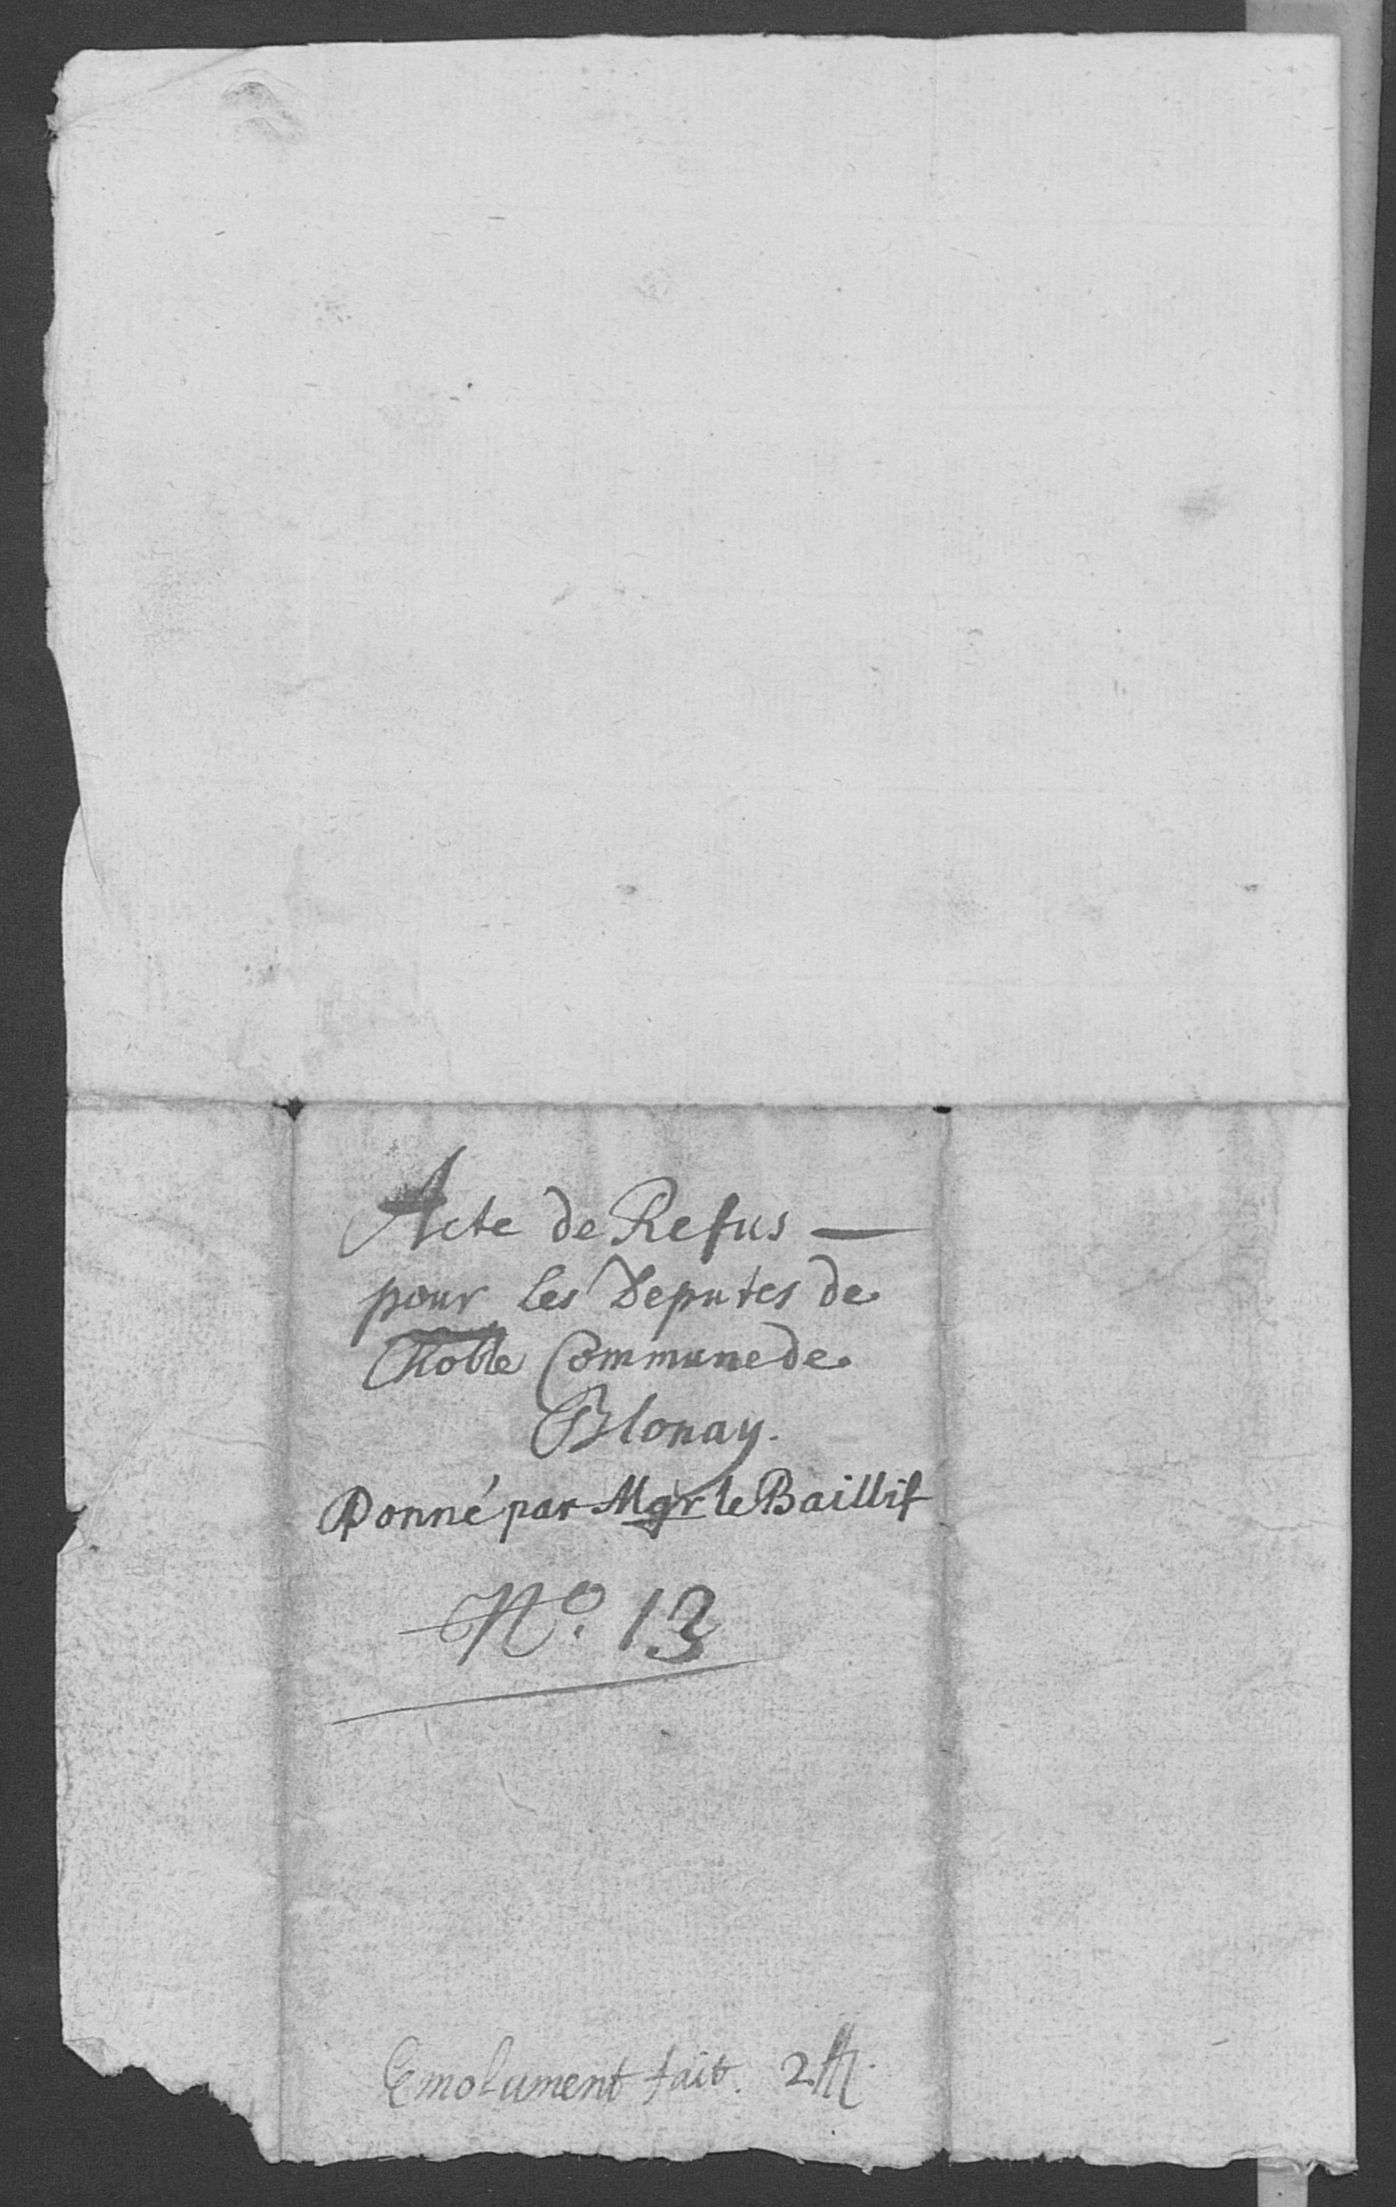 Acte de Refus —
pour les Deputes de
Noble Commune de
Blonay.
Donné par Mgr le Baillif
No. 13
Emolument fait. 2